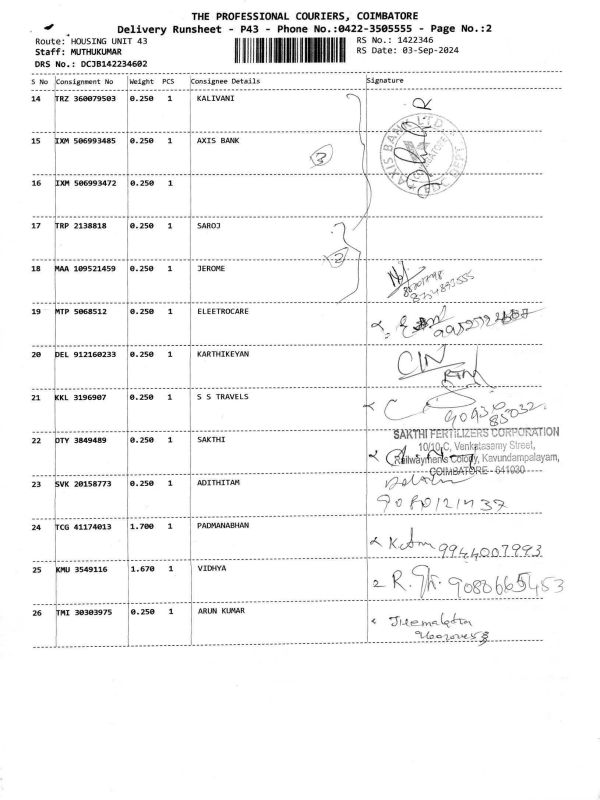 THE PROFESSIONAL COURIERS, COIMBATORE
Delivery Runsheet - P43 - Phone No.:0422-3505555 - Page No.:2
Route: HOUSING UNIT 43 RS No.: 1422346
Staff: MUTHUKUMAR RS Date: 03-Sep-2024
DRS No.: DCJB142234602
S No Consignment No Weight PCS Consignee Details Signature
14 TRZ 360079503 0.250 1 KALIVANI
15 IXM 506993485 0.250 1 AXIS BANK
AXIS BANK LTD
COIMBATORE
3
16 IXM 506993472 0.250 1
17 TRP 2138818 0.250 1 SAROJ
2
18 MAA 109521459 0.250 1 JEROME
19 MTP 5068512 0.250 1 ELEETROCARE
20 DEL 912160233 0.250 1 KARTHIKEYAN
CIN
21 KKL 3196907 0.250 1 S S TRAVELS
90930
85032
22 DTY 3849489 0.250 1 SAKTHI
SAKTHI FERTILIZERS CORPORATION
10/10-C, Venkatasamy Street,
Railwaymen's Colony, Kavundampalayam,
COIMBATORE - 641030
23 SVK 20158773 0.250 1 ADITHITAM
24 TCG 41174013 1.700 1 PADMANABHAN
9944007993
25 KMU 3549116 1.670 1 VIDHYA
26 TMI 30303975 0.250 1 ARUN KUMAR